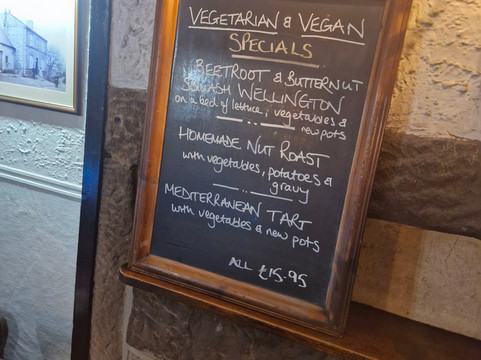 VEGETARIAN & VEGAN
SPECIALS
BEETROOT & BUTTERNUT
SQUASH WELLINGTON
on a bed of lettuce, vegetables &
new pots
HOMEMADE NUT ROAST
with vegetables, potatoes &
gravy
MEDITERRANEAN TART
with vegetables & new pots
ALL £15.95